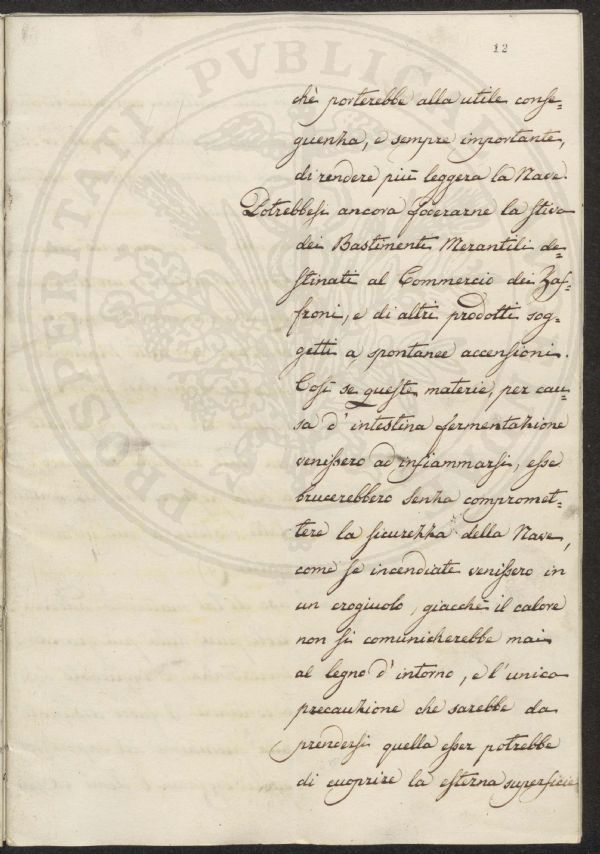 12
chè porterebbe alla utile conse=
guenza, e sempre importante,
di rendere più leggera la Nave.
Potrebbesi ancora foderarne la stiva
dei Bastimenti Mercantili de=
stinati al Commercio dei Zaf=
froni, e di altri prodotti sog=
getti a spontanee accensioni.
Così se queste materie, per cau=
sa d'intestina fermentazione
venissero ad infiammarsi, esse
brucerebbero senza compromet=
tere la sicurezza della Nave,
come se incendiate venissero in
un crogiuolo, giacchè il calore
non si comunicherebbe mai
al legno d'intorno, e l'unica
precauzione che sarebbe da
prendersi quella esser potrebbe
di cuoprire la esterna superficie
PROSPERITATI PVBLICAE